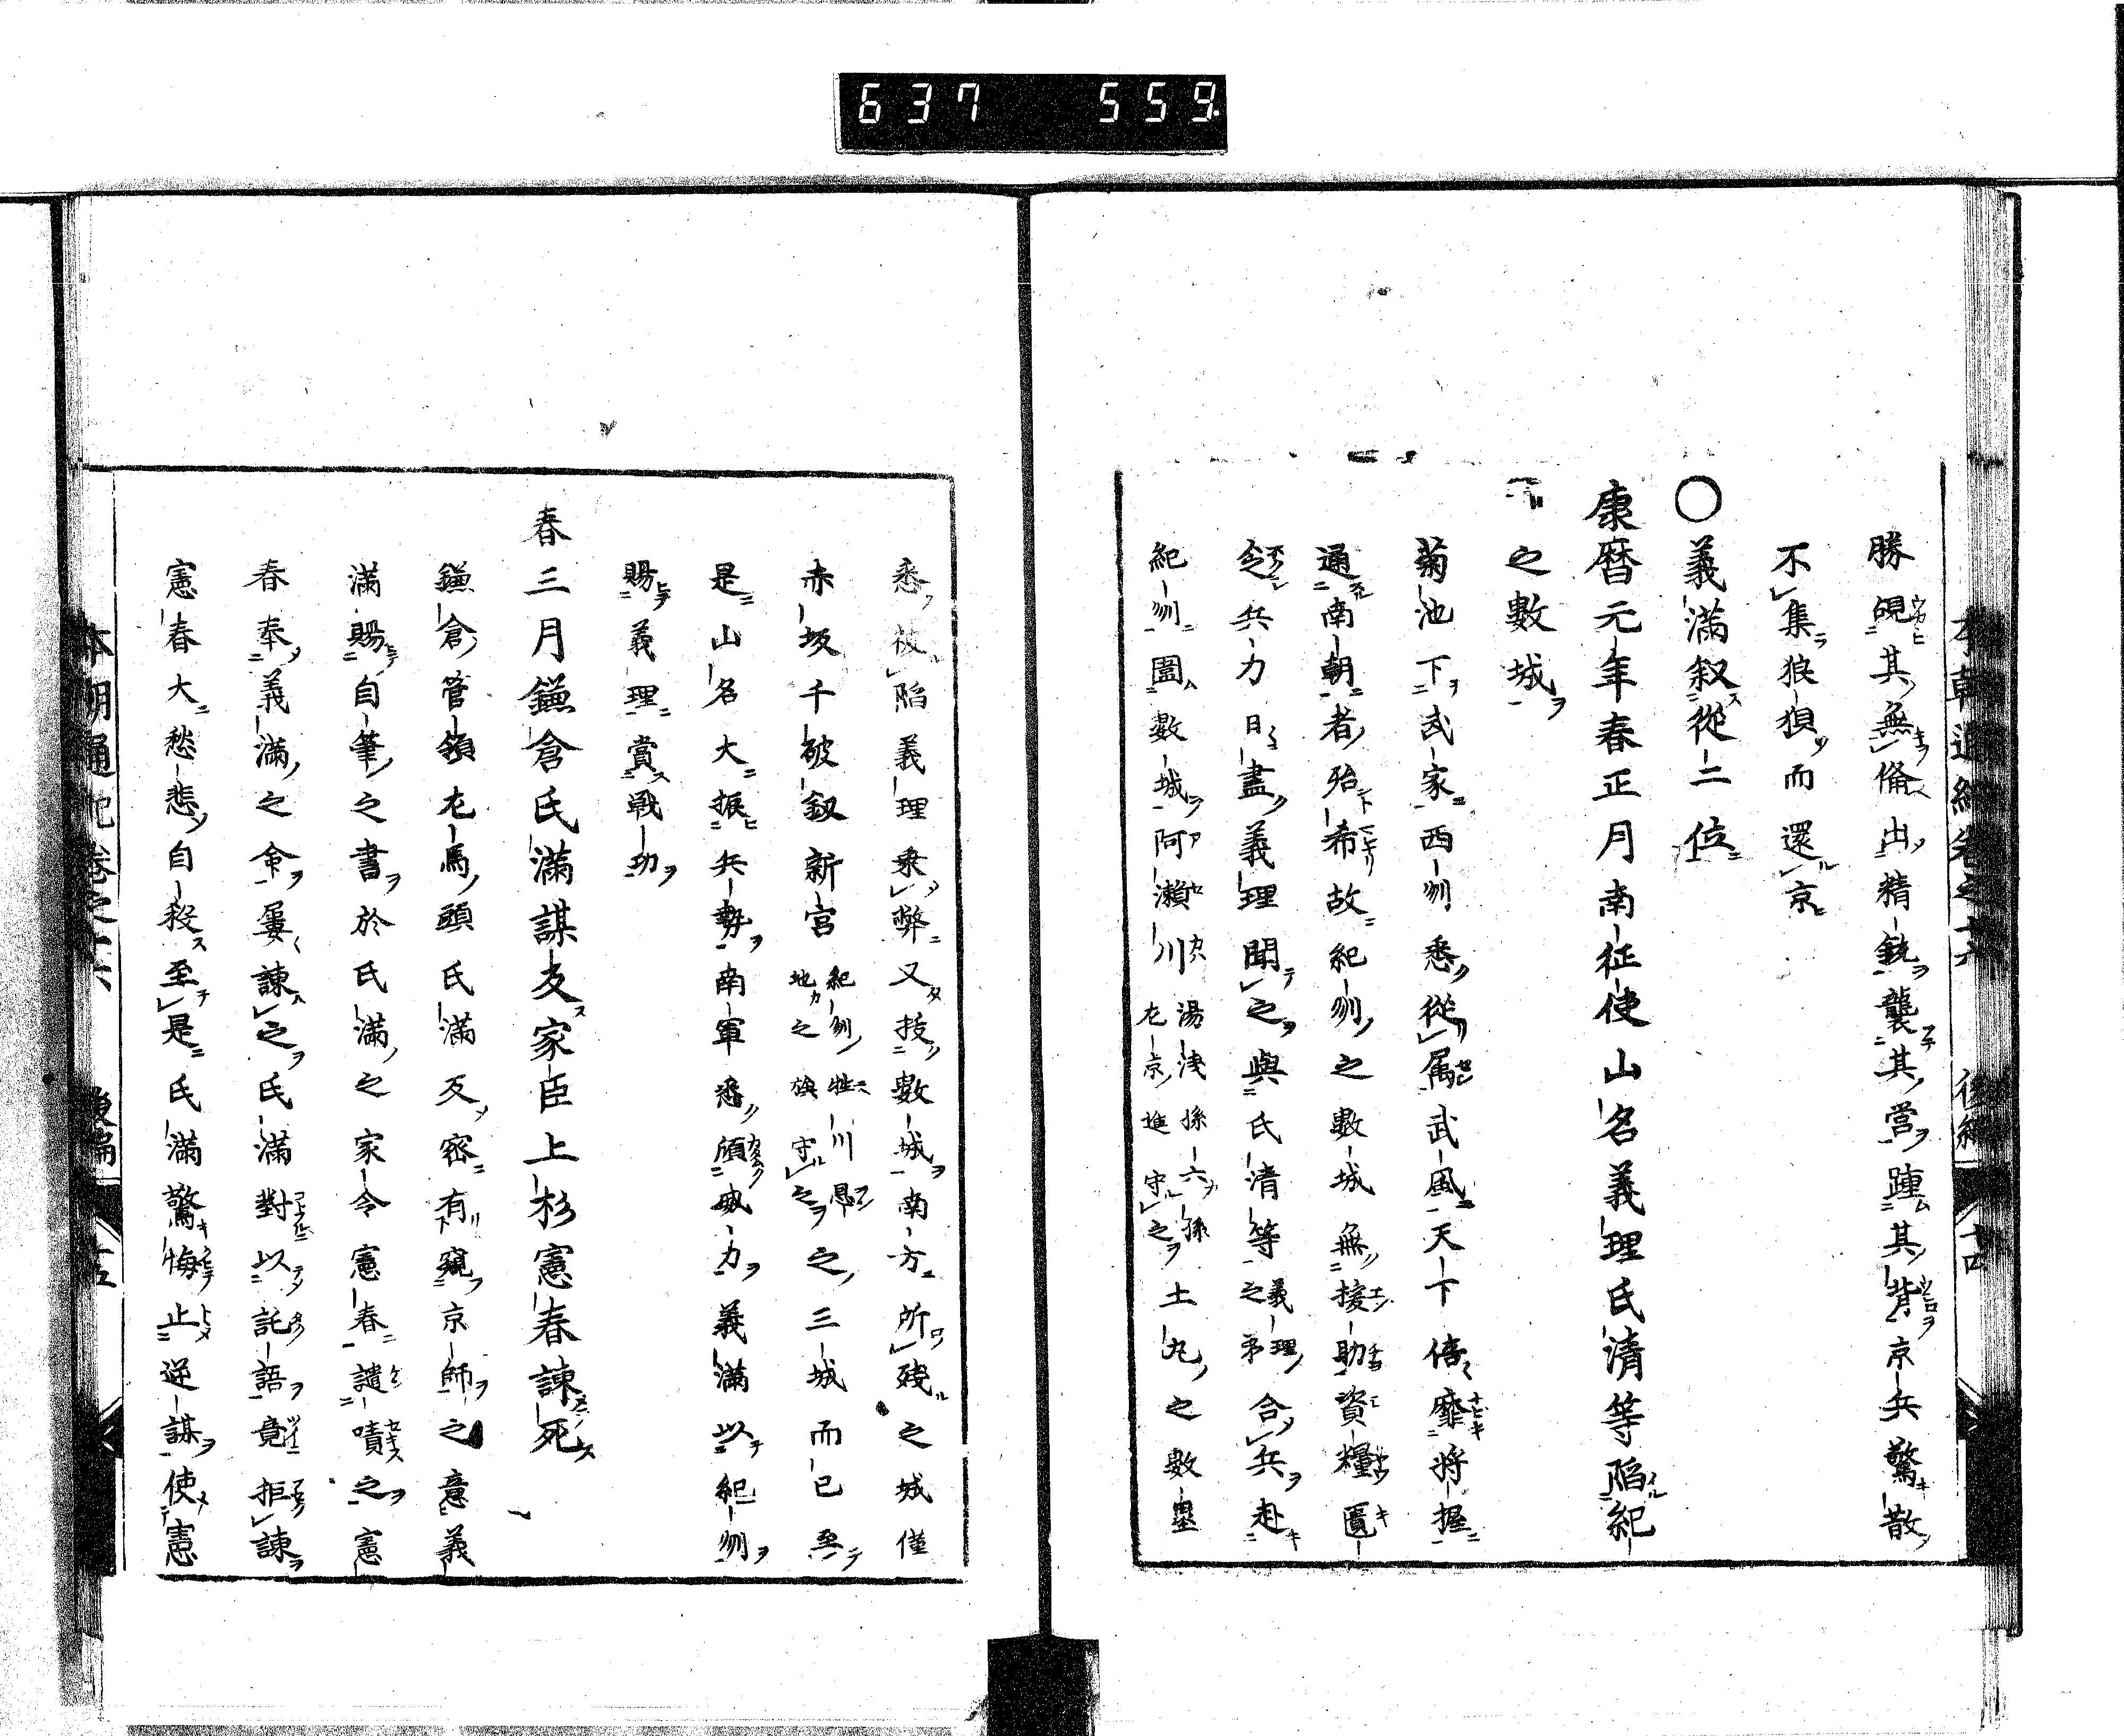 637 559
本朝通紀卷之十六 後編 十四
勝覘其無備出精銳襲其營踵其背京兵驚散
不集狼狽而還京
〇義滿叙從二位
康暦元年春正月南征使山名義理氏清等陷紀
之數城
菊池下武家西州悉從属武風天下偣靡將握
通南朝者殆希故紀州之數城無援助資糧匱
兵力日盡義理聞之與氏清等之義理弟合兵赴
紀州圍數城阿瀬川湯浅孫六孫左京進守之土丸之數壘
悉被陷義理乗弊又抜數城南方所殘之城僅
赤坂千破釼新宮紀州牲川恩地之族守之之三城而已至
是山名大振兵勢南軍悉頽威力義滿以紀州
賜義理賞戰功
春三月鎌倉氏滿謀反家臣上杉憲春諫死
鎌倉管領左馬頭氏滿反密有窺京師之意義
滿賜自筆之書於氏滿之家令憲春譴嘖之憲
春奉義滿之命屢諫之氏滿對以託語竟拒諫
憲春大愁悲自殺至是氏滿驚悔止逆謀使憲
本朝通紀卷之十六 後編 十五